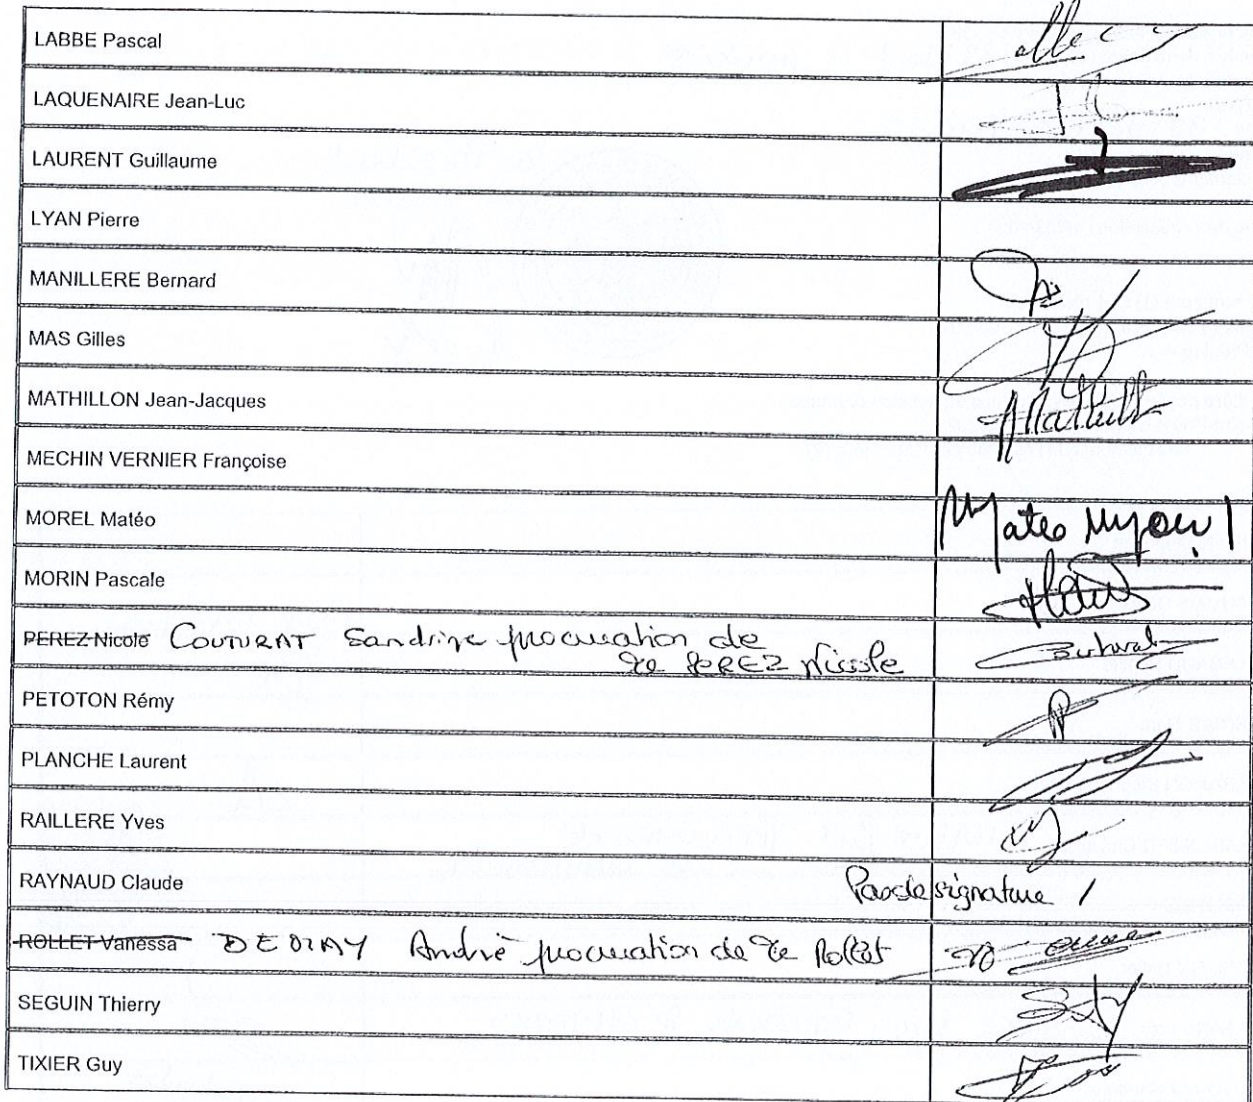 LABBE Pascal
LAQUENAIRE Jean-Luc
LAURENT Guillaume
LYAN Pierre
MANILLERE Bernard
MAS Gilles
MATHILLON Jean-Jacques
MECHIN VERNIER Françoise
MOREL Matéo
MORIN Pascale
PEREZ Nicole COUTURAT Sandrine procuration de
PEREZ Nicole
PETOTON Rémy
PLANCHE Laurent
RAILLERE Yves
RAYNAUD Claude Pas de signature /
ROLLET Vanessa André procuration de Rollet
SEGUIN Thierry
TIXIER Guy